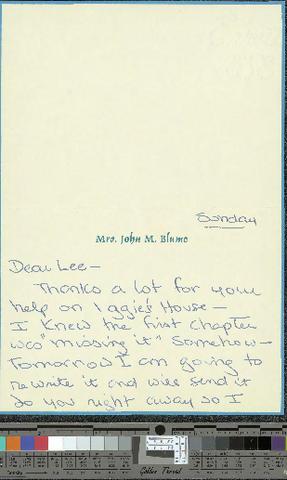 Sunday
Mrs. John M. Blume
Dear Lee—
Thanks a lot for your
help on Iggie's House—
I knew the first chapter
was "missing it" somehow—
Tomorrow I am going to
rewrite it and will send it
to you right away so I
Golden Thread